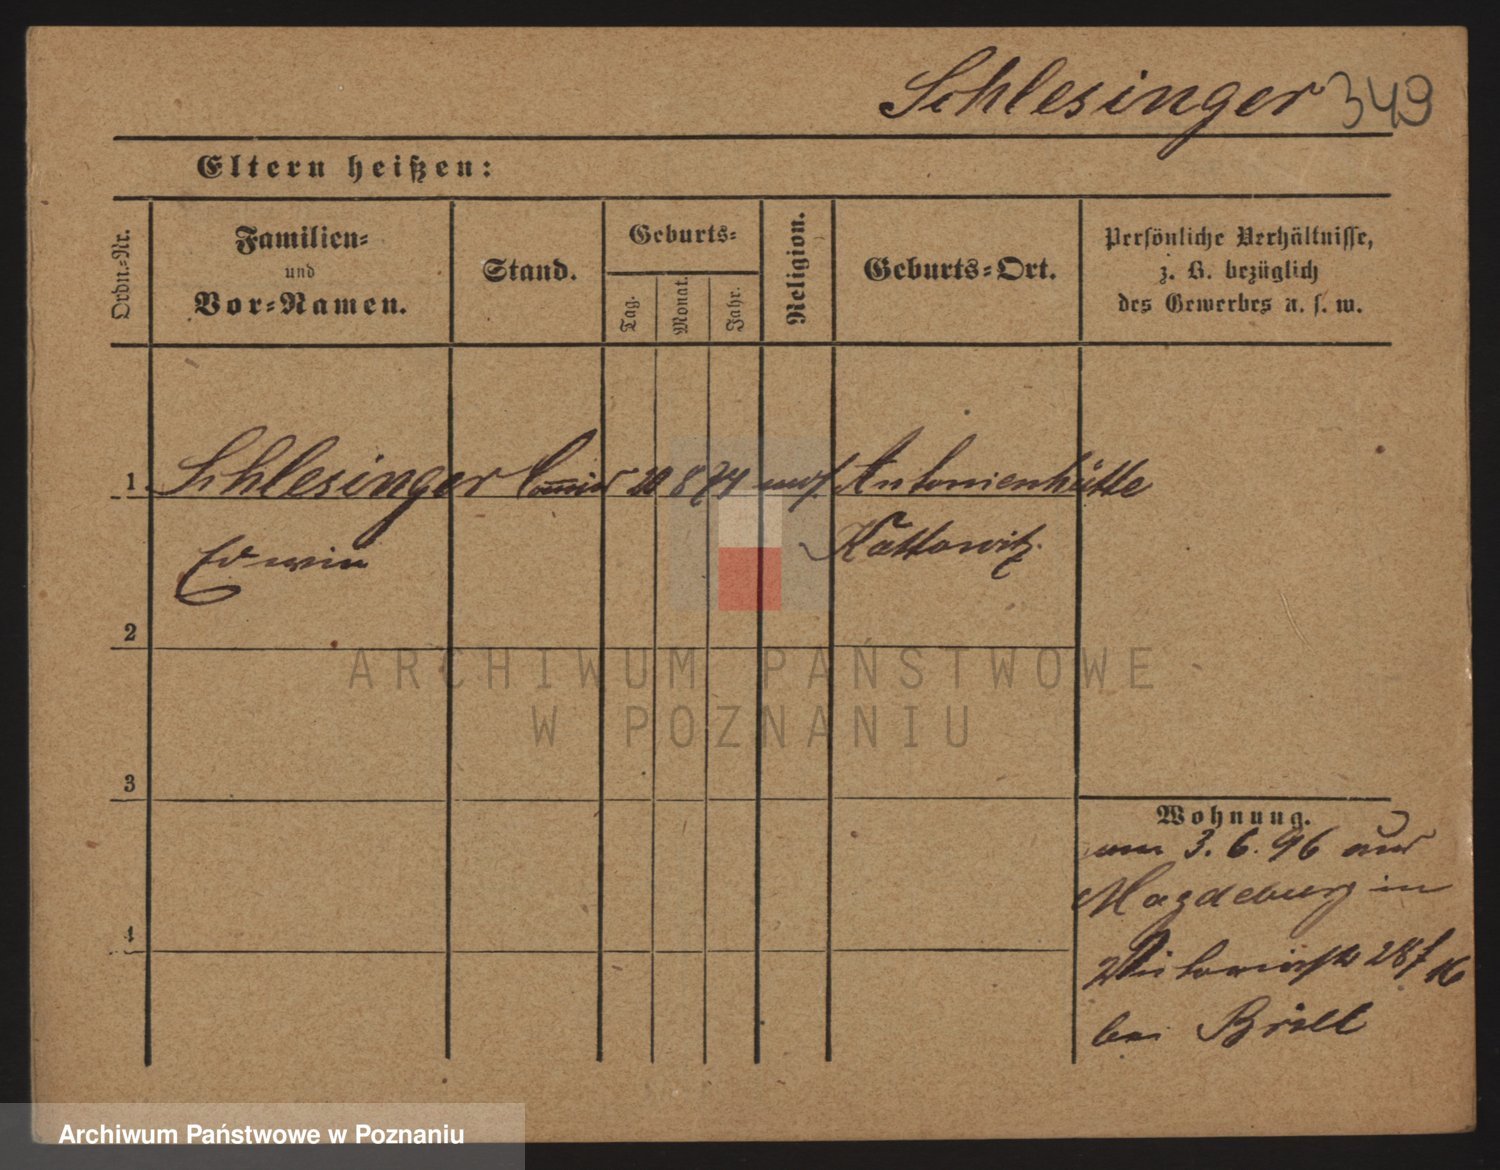 Schlesinger 349
Eltern heißen:
Ordn.-Nr.
Familien-
und
Vor-Namen.
Stand.
Geburts-
Tag.
Monat.
Jahr.
Religion.
Geburts-Ort.
Persönliche Verhältnisse,
z. B. bezüglich
des Gewerbes u. s. w.
1. Schlesinger Commis 20 8 74 mos. Antonienhütte
Edwin Kattowitz
2
ARCHIWUM PAŃSTWOWE
W POZNANIU
3
Wohnung.
am 3. 6. 96 aus
Magdeburg in
4
28 16
bei Brill
Archiwum Państwowe w Poznaniu